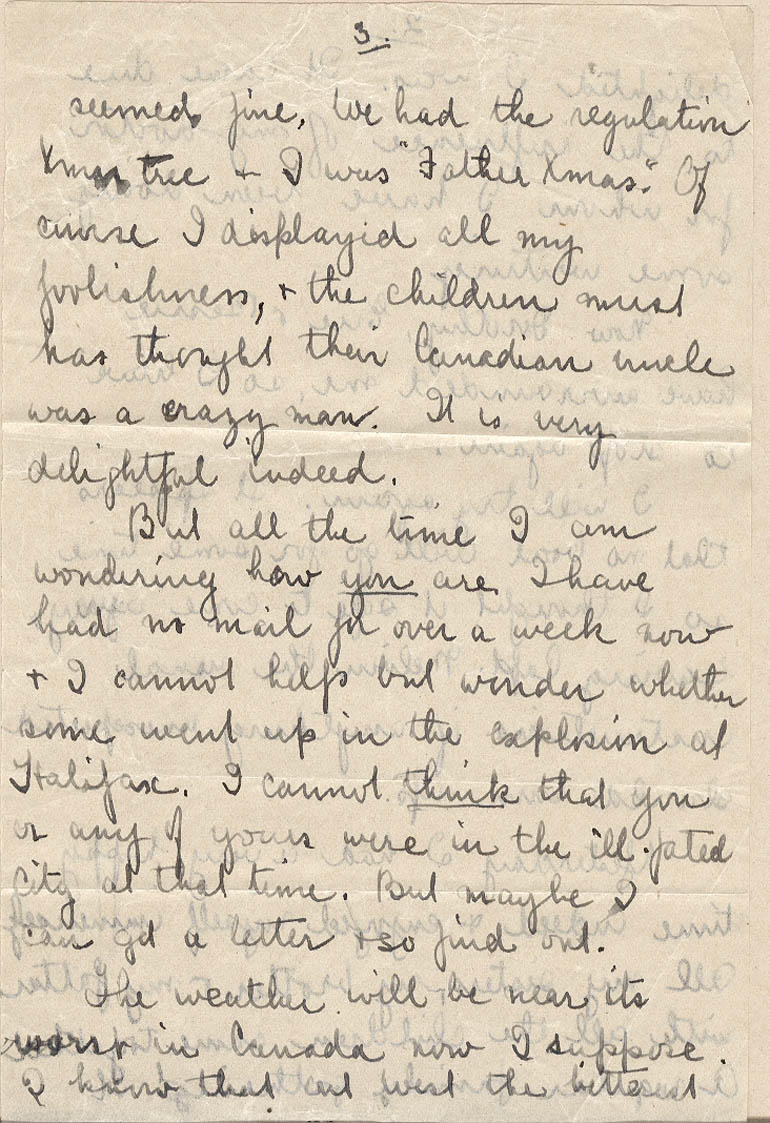 3.
seemed fine. We had the regulation
Xmas tree + I was "Father Xmas." Of
course I displayed all my
foolishness, + the children must
has thought their Canadian uncle
was a crazy man. It is very
delightful indeed.
But all the time I am
wondering how you are. I have
had no mail for over a week now
+ I cannot help but wonder whether
some went up in the explosion at
Halifax. I cannot think that you
or any of yours were in the ill-fated
city at that time. But maybe I
can get a letter + so find out.
The weather will be near its
worst in Canada now I suppose.
I know that out west the bitterest